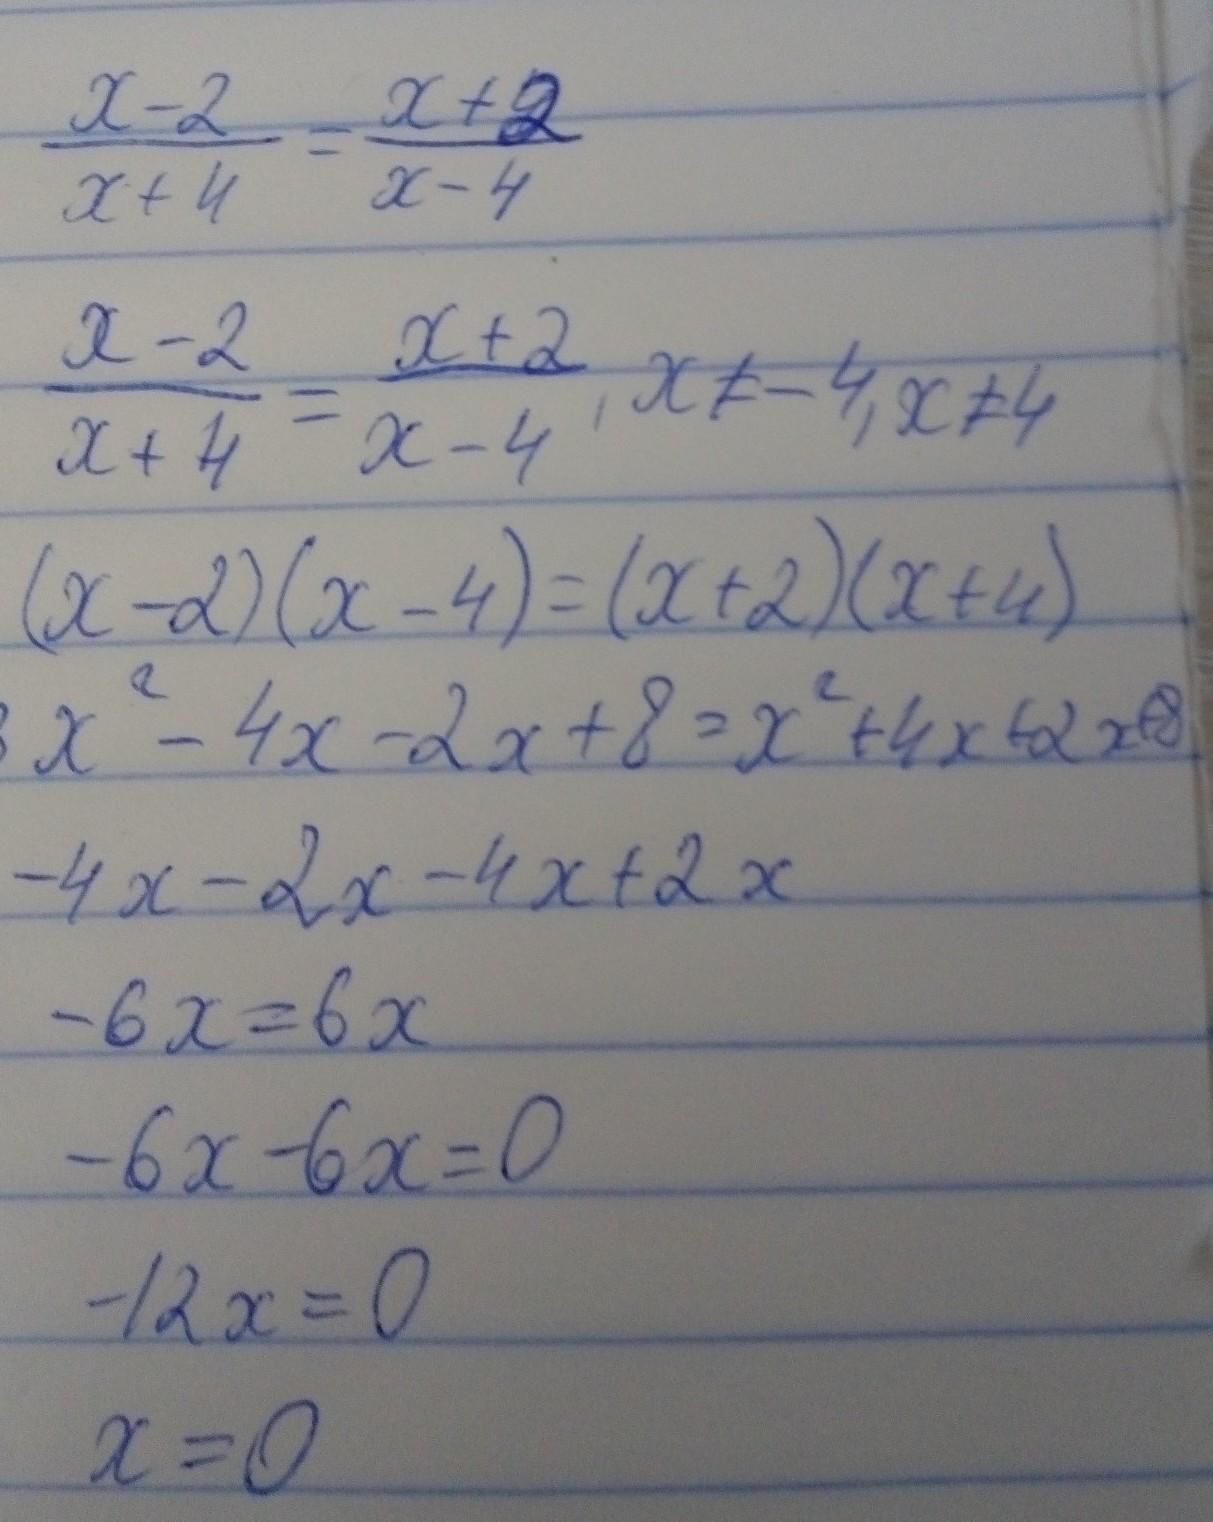 x-2/x+4 = x+2/x-4
x-2/x+4 = x+2/x-4, x≠-4, x≠4
(x-2)(x-4)=(x+2)(x+4)
x²-4x-2x+8=x²+4x+2x+8
-4x-2x-4x+2x
-6x=6x
-6x-6x=0
-12x=0
x=0